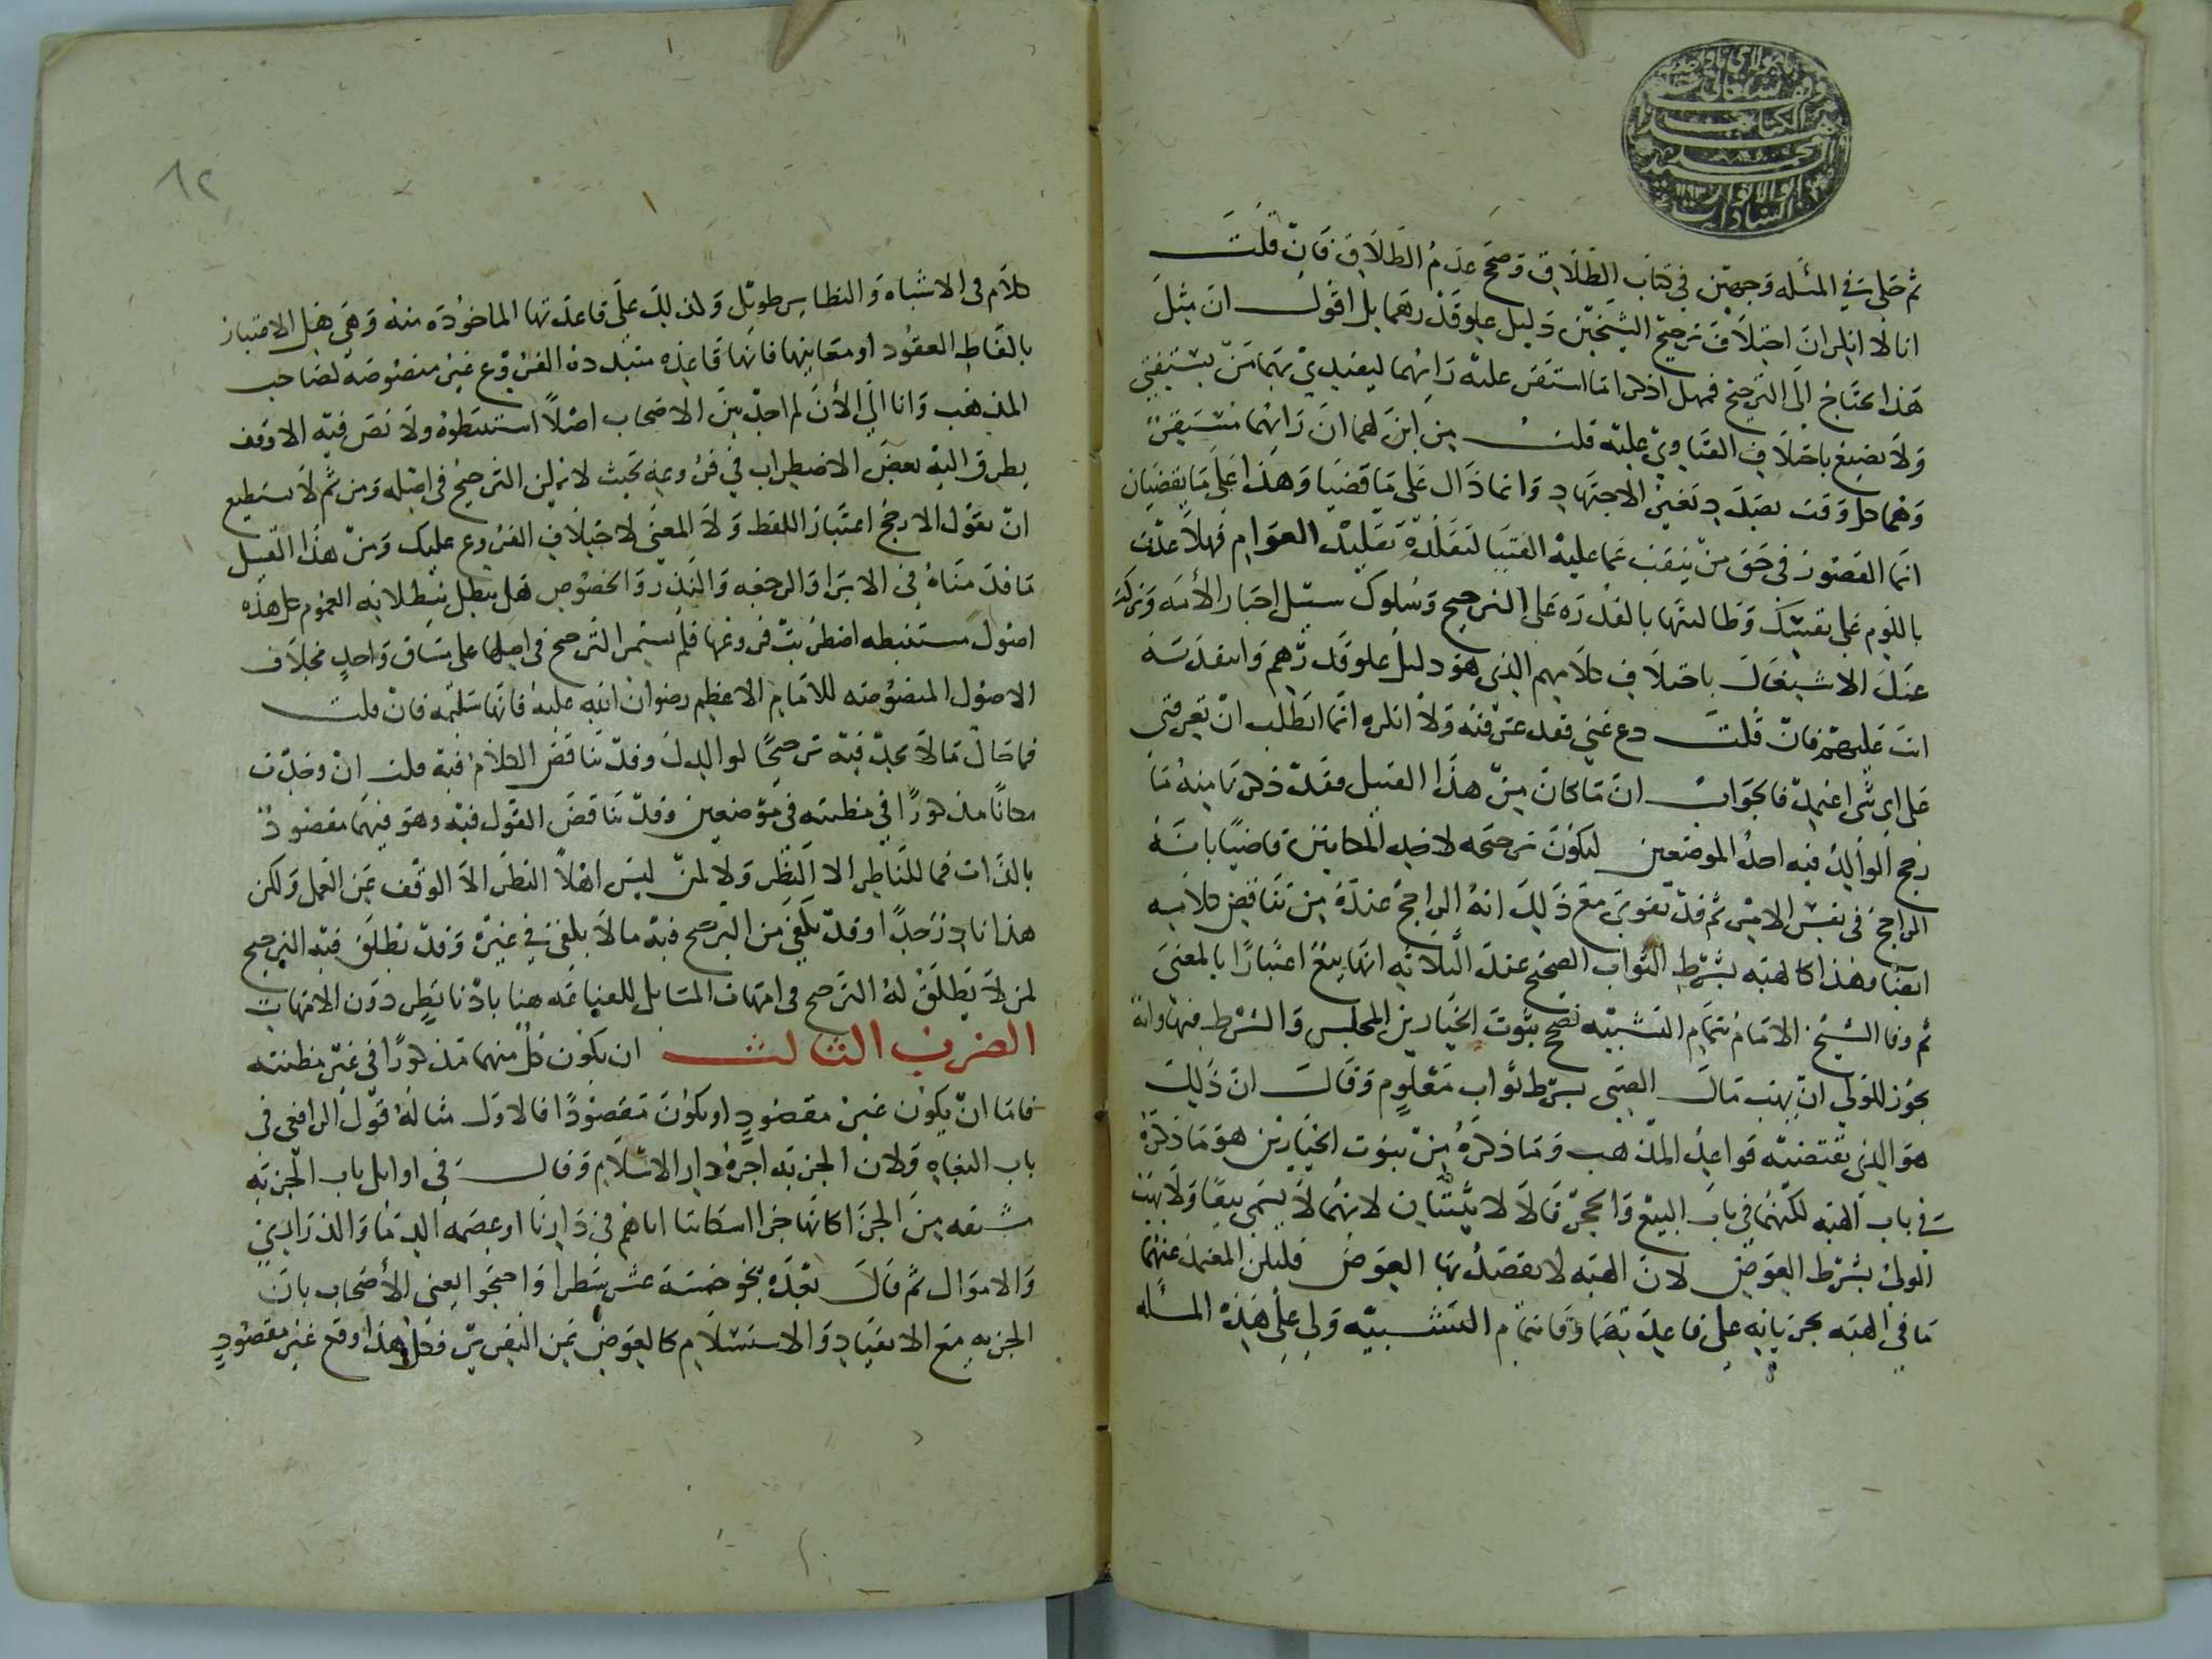 ثم حكى في المسئله وجهين في كتاب الطلاق وصحح عدم الطلاق فان قلت
انا لا انكر ان اختلاف ترجيح الشيخين دليل علو قدرهما بل اقول ان مثل
هذا يحتاج الى الترجيح فهل اذكر اما استقر عليه رايهما ليقتدي بهما من يستفتي
ولا يضيع باختلاف الفتاوي عليه قلت من اين لهما ان رايهما مستقر
وهما كل وقت بصدد تغير الاجتهاد وانما ذاك على ما قضيا وهذا على ما يقضيان
انما القصور في حق من يقف عما عليه الفتيا لتقلده تقليد العوام فهلا عدت
باللوم على نفسك وطالبتها بالقدره على الترجيح وسلوك سبيل احبار الأمه وتركت
عنك الاشتغال باختلاف كلامهم الذي هو دليل علو قدرهم وانتقدته
انت عليهم فان قلت دع عني فقد عرفته ولا انكره انما اطلب ان تعرفني
على اي شي اعتمد فالجواب ان ما كان من هذا القبيل فقد ذكرنا منه ما
رجح الوالد فيه احد الموضعين ليكون ترجيحه لاحد المكانين قاضيا بانه
الراجح في نفس الامر ثم قد تقوى مع ذلك انه الراجح عنده من تناقض كلاميه
ايضا وهذا كالهبه بشرط الثواب الصحيح عند الثلاثه انها بيع اعتبارا بالمعنى
ثم وفا الشيخ الامام بتمام التشبيه فصحح ثبوت الخيارين المجلس والشرط فيها وانه
يجوز للولي ان يهب مال الصبي بشرط ثواب معلوم وقال ان ذلك
هو الذي تقتضيه قواعد المذهب وما ذكره من ثبوت الخيارين هو ما ذكره
في باب الهبه لكنهما في باب البيع والحجر قالا لا يثبتان لانهما لا يسمى بيعا ولا يهب
الولي بشرط العوض لان الهبه لا يقصد بها العوض فليكن المعتمد عنهما
ما في الهبه بجريانه على قاعدتهما وفا بتمام التشبيه ولي على هذه المسئله
٨٢
كلام في الاشباه والنظاير طويل ولذلك على قاعدتها الماخوذه منه وهي هل الاعتبار
بالفاظ العقود او معانيها فانها قاعده متبدده الفروع غير منصوصه لصاحب
المذهب وانا الي الأن لم اجد بين الاصحاب اصلا استنبطوه ولا نص فيه الا وقف
يطرق اليه بعض الاضطراب في فروعه بحيث لا يمكن الترجيح في اصله ومن ثم لا يستطيع
ان يقول الارجح اعتبار اللفظ ولا المعنى لاختلاف الفروع عليك ومن هذا القبيل
ما قدمناه في الابرا والرجعه والنذر والخصوص هل يبطل ببطلانه العموم كل هذه
اصول مستنبطه اضطربت فروعها فلم يستمر الترجيح في اصلها على ساق واحد بخلاف
الاصول المنصوصه للامام الاعظم رضوان الله عليه فانها سليمه فان قلت
فما حال ما لا يجد فيه ترجيحا لوالدك وقد تناقض الكلام فيه قلت ان وجدت
مكانا مذكورا في مظنته في موضعين وقد تناقض القول فيه وهو فيهما مقصود
بالذات فما للناظر الا النظر ولا لمن ليس اهلا النظر الا الوقف عن العمل ولكن
هذا نادر جدا وقد يكفي من الترجيح فيه ما لا يكفي في غيره وقد نطلق فيه الترجيح
لمن لا يطلق له الترجيح في امهات المسايل للغناعه هنا بادنا نظر دون الامهات
الضرب الثالث ان يكون كل منهما مذكورا في غير مظنته
فاما ان يكون غير مقصود او يكون مقصودا فالاول مثاله قول الرافعي في
باب البغاه ولان الجزيه اجره دار الاسلام وقال في اوايل باب الجزيه
مشتقه من الجزا كانها جزا اسكاننا اياهم في دارنا او عصمه الدما والذراري
والاموال ثم قال بعده بنحو خمسة عشر سطرا واحتجوا يعني الأصحاب بان
الجزيه مع الانقياد والاستسلام كالعوض عن التقرير فكل هذا وقع غير مقصود